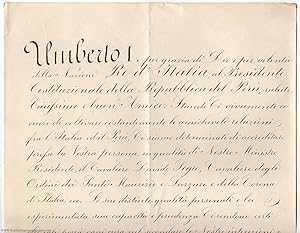 Umberto I, per grazia di Dio e per volontà
della Nazione Re d'Italia al Presidente
Costituzionale della Repubblica del Perù, salute.
Carissimo e buon Amico. Stando Ci vivamente a
cuore di coltivare costantemente le amichevoli relazioni
fra l'Italia ed il Perù, Ci siamo determinati di accreditare
presso la Vostra persona, in qualità di Nostro Ministro
Residente, il Cavaliere Davide Segre, Cavaliere degli
Ordini dei Santi Maurizio e Lazzaro e della Corona
d'Italia, ecc. Le sue distinte qualità personali e la
esperimentata sua capacità e prudenza Ci rendono certi
Nostre intenzioni e